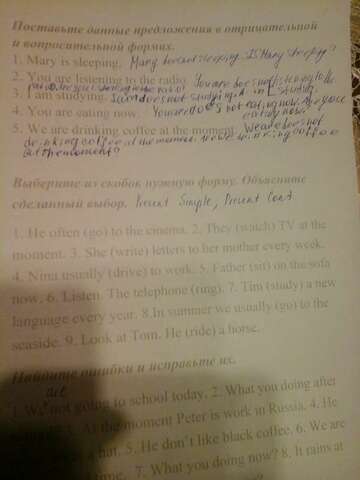 Поставьте данные предложения в отрицательной
и вопросительной формах.
1. Mary is sleeping. Mary doesnot sleeping. Is Mary sleeping?
2. You are listening to the radio. You are does not listening to the
radio. Are you listening to the radio?
3. I am studying. I am does not studying. Am I studying.
4. You are eating now. You are does not eating now. Are you
eating now.
5. We are drinking coffee at the moment. We are does not
drinking coffee at the moment. Are we drinking coffee
at the moment?
Выберите из скобок нужную форму. Объясните
сделанный выбор. Present Simple, Present Cont
1. He often (go) to the cinema. 2. They (watch) TV at the
moment. 3. She (write) letters to her mother every week.
4. Nina usually (drive) to work. 5. Father (sit) on the sofa
now. 6. Listen. The telephone (ring). 7. Tim (study) a new
language every year. 8.In summer we usually (go) to the
seaside. 9. Look at Tom. He (ride) a horse.
Найдите ошибки и исправьте их.
1. We not going to school today. 2. What you doing after
At the moment Peter is work in Russia. 4. He
a hat. 5. He don't like black coffee. 6. We are
7. What you doing now? 8. It rains at